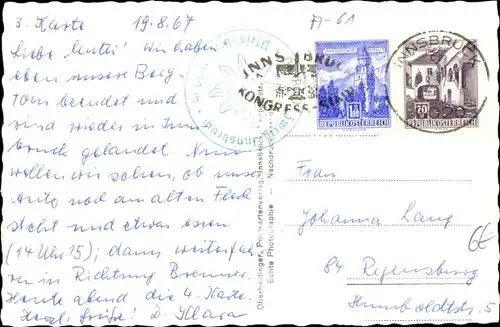 3. Karte 19.8.67
Liebe Mutti! Wir haben
eben unsere Berg-
tour beendet und
sind wieder in Inns-
bruck gelandet. Nun
wollen wir sehen, ob unser
Auto noch am alten Fleck
steht und etwas essen
(14 Uhr 15); dann weiterfah-
ren in Richtung Brenner.
Heute abend die 4. Karte.
Herzl. Grüße! D. Klara
A-61
INNSBRUCK
KONGRESS-STADT
REPUBLIK ÖSTERREICH
INNSBRUCK
70
REPUBLIK ÖSTERREICH
Postkartenverlag, Innsbruck
Echte Photographie - Nachdruck
Frau
Johanna Lang
84 Regensburg
Humboldtstr. 5
6€